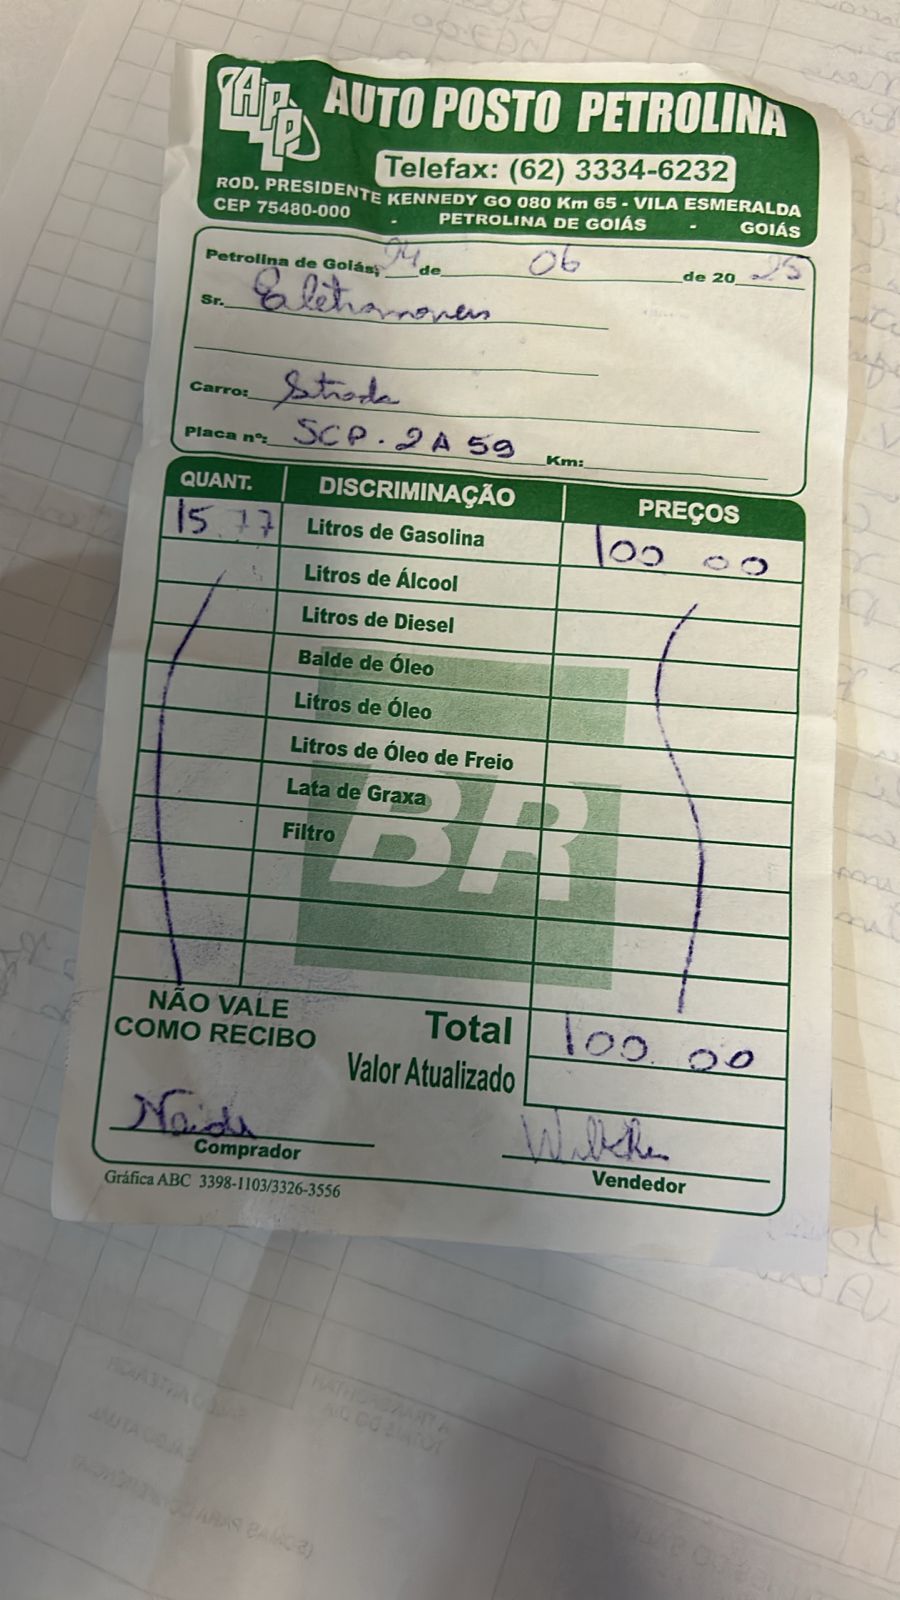 APP AUTO POSTO PETROLINA
Telefax: (62) 3334-6232
ROD. PRESIDENTE KENNEDY GO 080 Km 65 - VILA ESMERALDA
CEP 75480-000 - PETROLINA DE GOIÁS - GOIÁS
Petrolina de Goiás, 24 de 06 de 20 25
Sr. Eletromoveis
Carro: Strada
Placa nº: SCP. 2A59 Km:
QUANT. DISCRIMINAÇÃO PREÇOS
15.77 Litros de Gasolina 100 00
Litros de Álcool
Litros de Diesel
Balde de Óleo
Litros de Óleo
Litros de Óleo de Freio
Lata de Graxa
Filtro
BR
NÃO VALE
COMO RECIBO
Total 100.00
Valor Atualizado
Comprador
Vendedor
Gráfica ABC 3398-1103/3326-3556